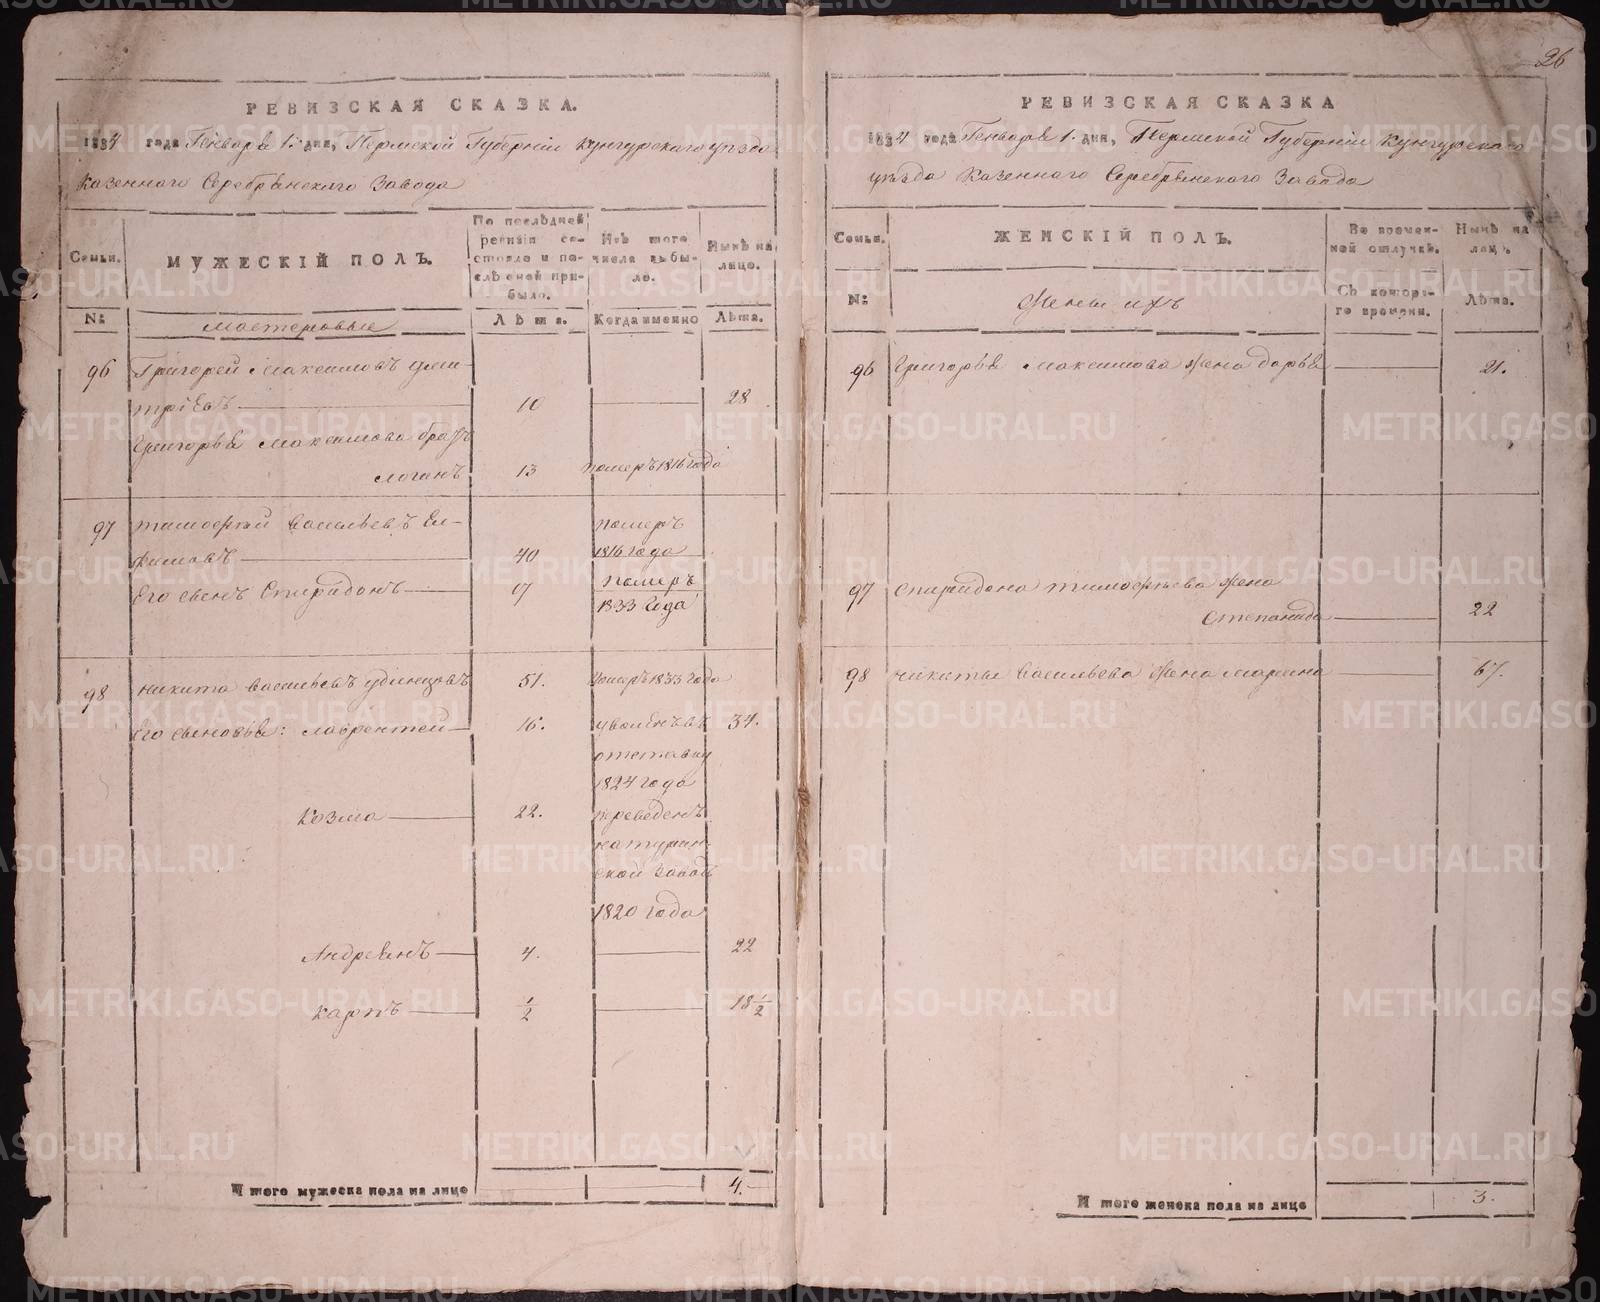 26
РЕВИЗСКАЯ СКАЗКА.
1834 года Генваря 1. дня, Пермской Губерніи Кунгурскаго уѣзда
Казеннаго Серебрянскаго Завода
Семьи.
МУЖЕСКІЙ ПОЛЪ.
По послѣдней
ревизіи со-
стояло и по-
слѣ оной при-
было.
Изъ того
числа выбы-
ло.
Нынѣ на
лицо.
№
мастеровые
Лѣта.
Когда именно
Лѣта.
96 Григорей Максимовъ Дми-
тріевъ 10 28
Григорья Максимова братъ
Логинъ 13 померъ 1816 года
97 Тимофей Васильевъ Ел- померъ
фимовъ 40 1816 года
Его сынъ Спиридонъ 17 померъ
1833 года
98 Никита Васильевъ Удинцовъ 51. померъ 1833 года
Его сыновья: Лаврентей 16. уволенъ въ 34.
отставку
1824 года
Козма 22. переведенъ
на Турин-
ской Заводъ
1820 года
Андреянъ 4. 22
Карпъ 1/2 18 1/2
И того мужеска пола на лицо 4.
РЕВИЗСКАЯ СКАЗКА
1834 года Генваря 1. дня, Пермской Губерніи Кунгурскаго
уѣзда Казеннаго Серебрянскаго Завода
Семьи.
ЖЕНСКІЙ ПОЛЪ.
Во времен-
ной отлучкѣ.
Нынѣ на
лицо.
№
Жены ихъ
Съ котора-
го времени.
Лѣта.
96 Григорья Максимова жена Дарья 21.
97 Спиридона Тимофеева жена
Степанида 22
98 Никиты Васильева жена Марина 67.
И того женска пола на лицо 3.